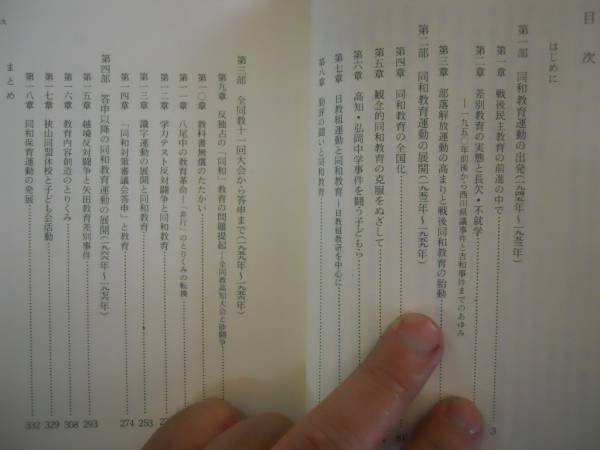 目次
はじめに
第一部 同和教育運動の出発(一九四五年〜一九五三年)
第一章 戦後民主教育の前進の中で 3
第二章 差別教育の実態と長欠・不就学
―一九五〇年前後から西川県議事件と吉和事件までのあゆみ
第三章 部落解放運動の高まりと戦後同和教育の胎動
第二部 同和教育運動の展開(一九五三年〜一九五九年)
第四章 同和教育の全国化
第五章 観念的同和教育の克服をめざして
第六章 高知・弘岡中学事件を闘う子どもら
第七章 日教組運動と同和教育―日教組教研を中心に
第八章 勤評の闘いと同和教育
第三部 全同教十一回大会から答申まで(一九五九年〜一九六五年)
第九章 反独占の「同和」教育の問題提起―全同教高知大会と砂闘争
第一〇章 教科書無償のたたかい
第一一章 八尾中の教育革命―「非行」のとりくみの転換
第一二章 学力テスト反対闘争と同和教育
第一三章 識字運動の展開と同和教育 253
第一四章 「同和対策審議会答申」と教育 274
第四部 答申以降の同和教育運動の展開(一九六六年〜一九七六年)
第一五章 越境反対闘争と矢田教育差別事件 293
第一六章 教育内容創造のとりくみ 308
第一七章 狭山同盟休校と子ども会活動 329
第一八章 同和保育運動の発展 332
まとめ
次